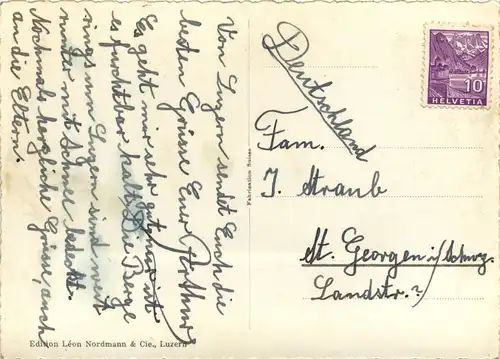 Von Luzern sendet Euch die
besten Grüsse Euer Arthur
Es geht mir sehr gut, nur ist
es furchtbar kalt. Die Berge
rings um Luzern sind weit
runter mit Schnee bedeckt.
Nochmals herzliche Grüsse, auch
an die Eltern.
Edition Léon Nordmann & Cie., Luzern
Fabrication Suisse
Deutschland
Fam.
J. Straub
St. Georgen i/Schwz.
Landstr.?
10
HELVETIA